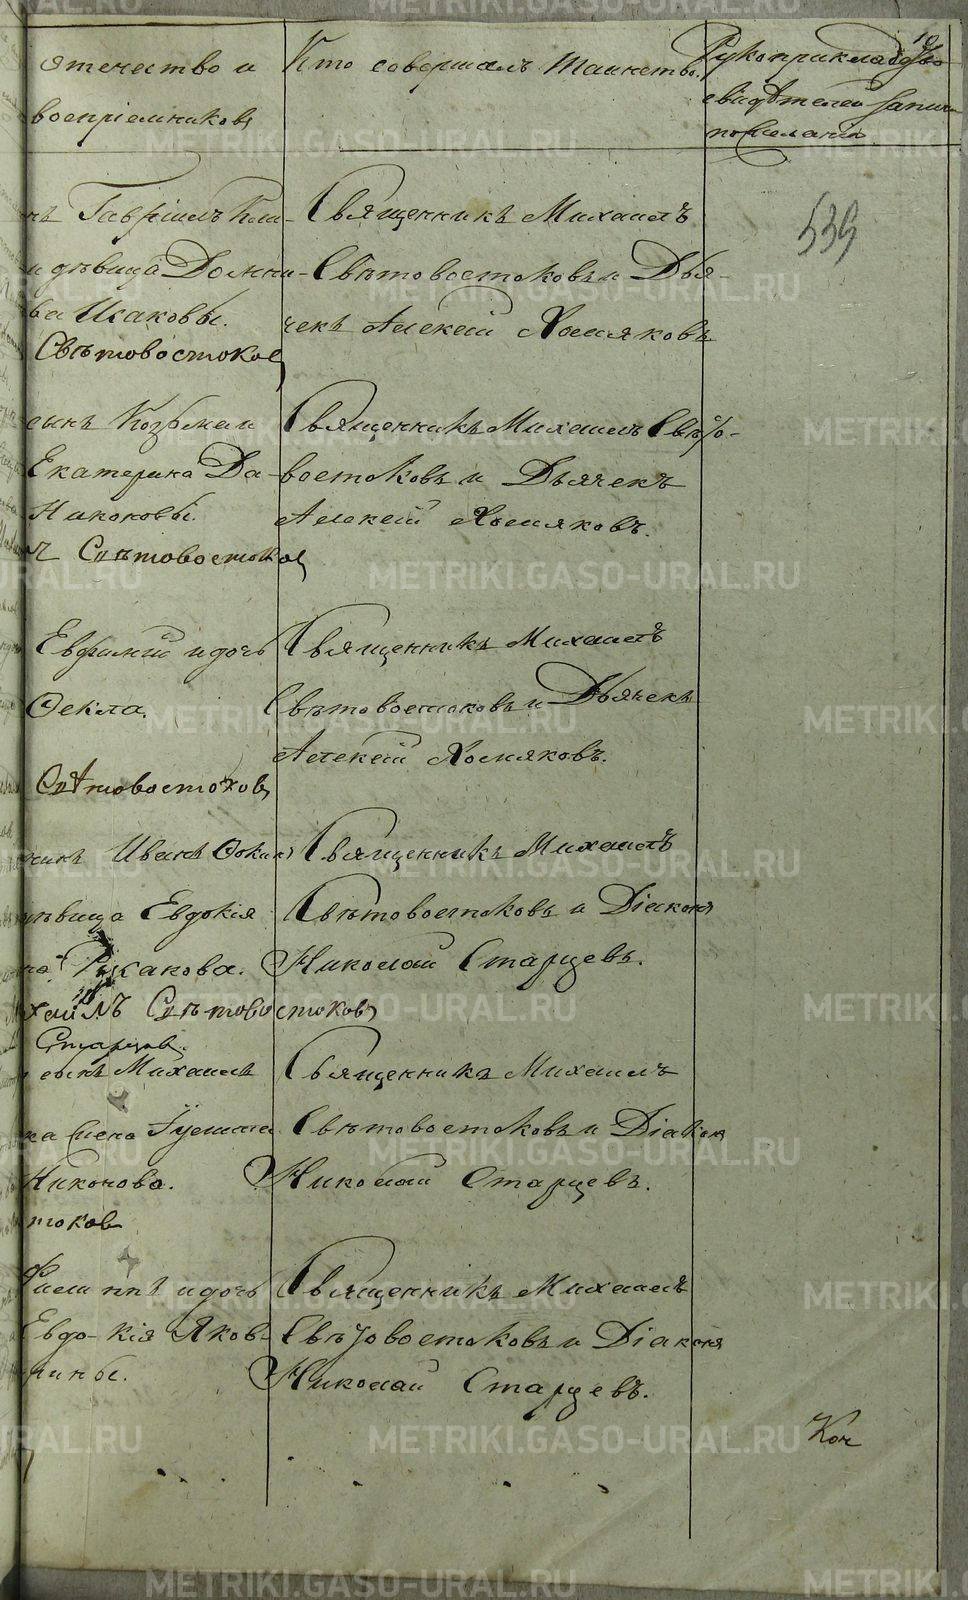 отечество и
воспріемниковъ
Кто совершалъ таинство.
Рукоприкладство
свидѣтелей записи
по желанію
10
539
нъ Гавріилъ Кли-
и дѣвица Домни-
ва Исаковы.
Свѣтовостоковъ
Священникъ Михаилъ
Свѣтовостоковъ и Дья-
чекъ Алексѣй Хомяковъ
сынъ Козьма и
Екатерина Да-
Никоновы.
лъ Свѣтовостоковъ
Священникъ Михаилъ Свѣто-
востоковъ и Дьячекъ
Алексѣй Хомяковъ.
Евфимій и дочь
Ѳекла.
Свѣтовостоковъ
Священникъ Михаилъ
Свѣтовостоковъ и Дьячекъ
Алексѣй Хомяковъ.
никъ Иванъ Ѳокинъ
дѣвица Евдокія
Русакова.
хаилъ Свѣтовостоковъ
Старцевъ.
Священникъ Михаилъ
Свѣтовостоковъ и Діаконъ
Николай Старцевъ.
сынъ Михаилъ
Никонова.
токовъ
Священникъ Михаилъ
Свѣтовостоковъ и Діаконъ
Николай Старцевъ.
Филиппъ и дочь
Евдокія Яков-
лины.
Священникъ Михаилъ
Свѣтовостоковъ и Діаконъ
Николай Старцевъ.
METRIKI.GASO-URAL.RU